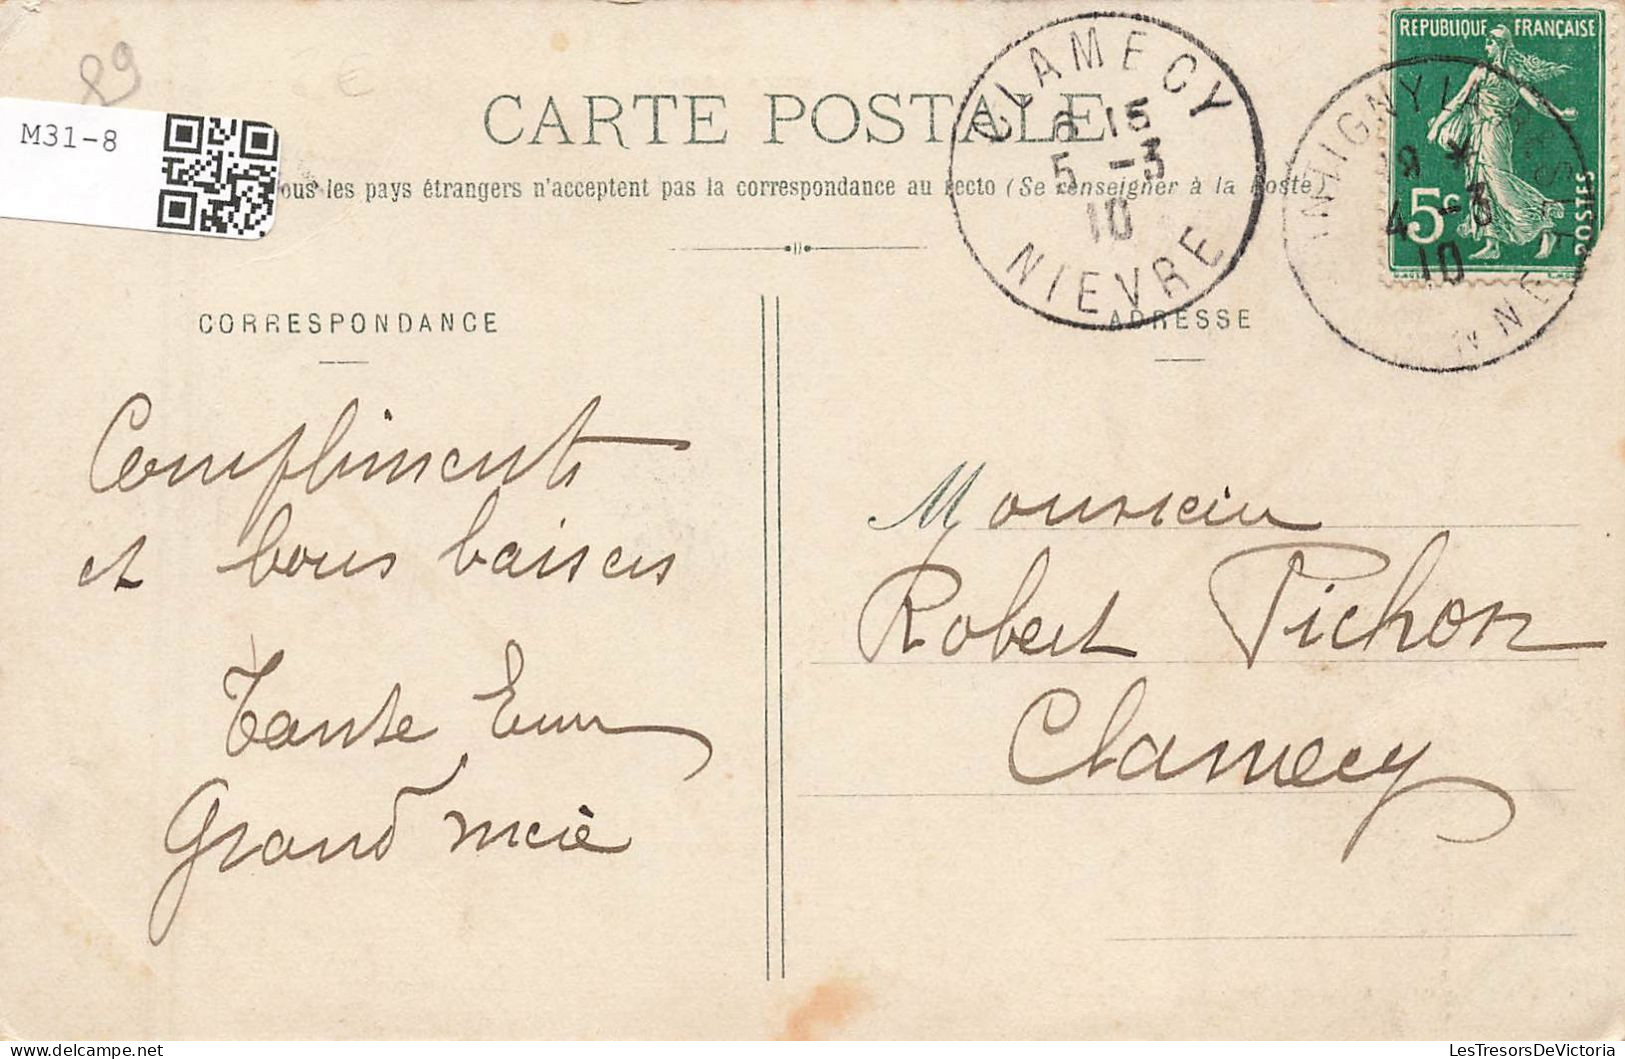 89
M31-8
CARTE POSTALE
ous les pays étrangers n'acceptent pas la correspondance au recto (Se renseigner à la Poste)
CLAMECY
6 15
5 -3
10
NIEVRE
REPUBLIQUE FRANÇAISE
5c
POSTES
18 *
4 -3
10
CORRESPONDANCE
ADRESSE
Compliments
et bons baisers
Tante Emm
Grand mère
Monsieur
Robert Pichon
Clamecy
LesTresorsDeVictoria